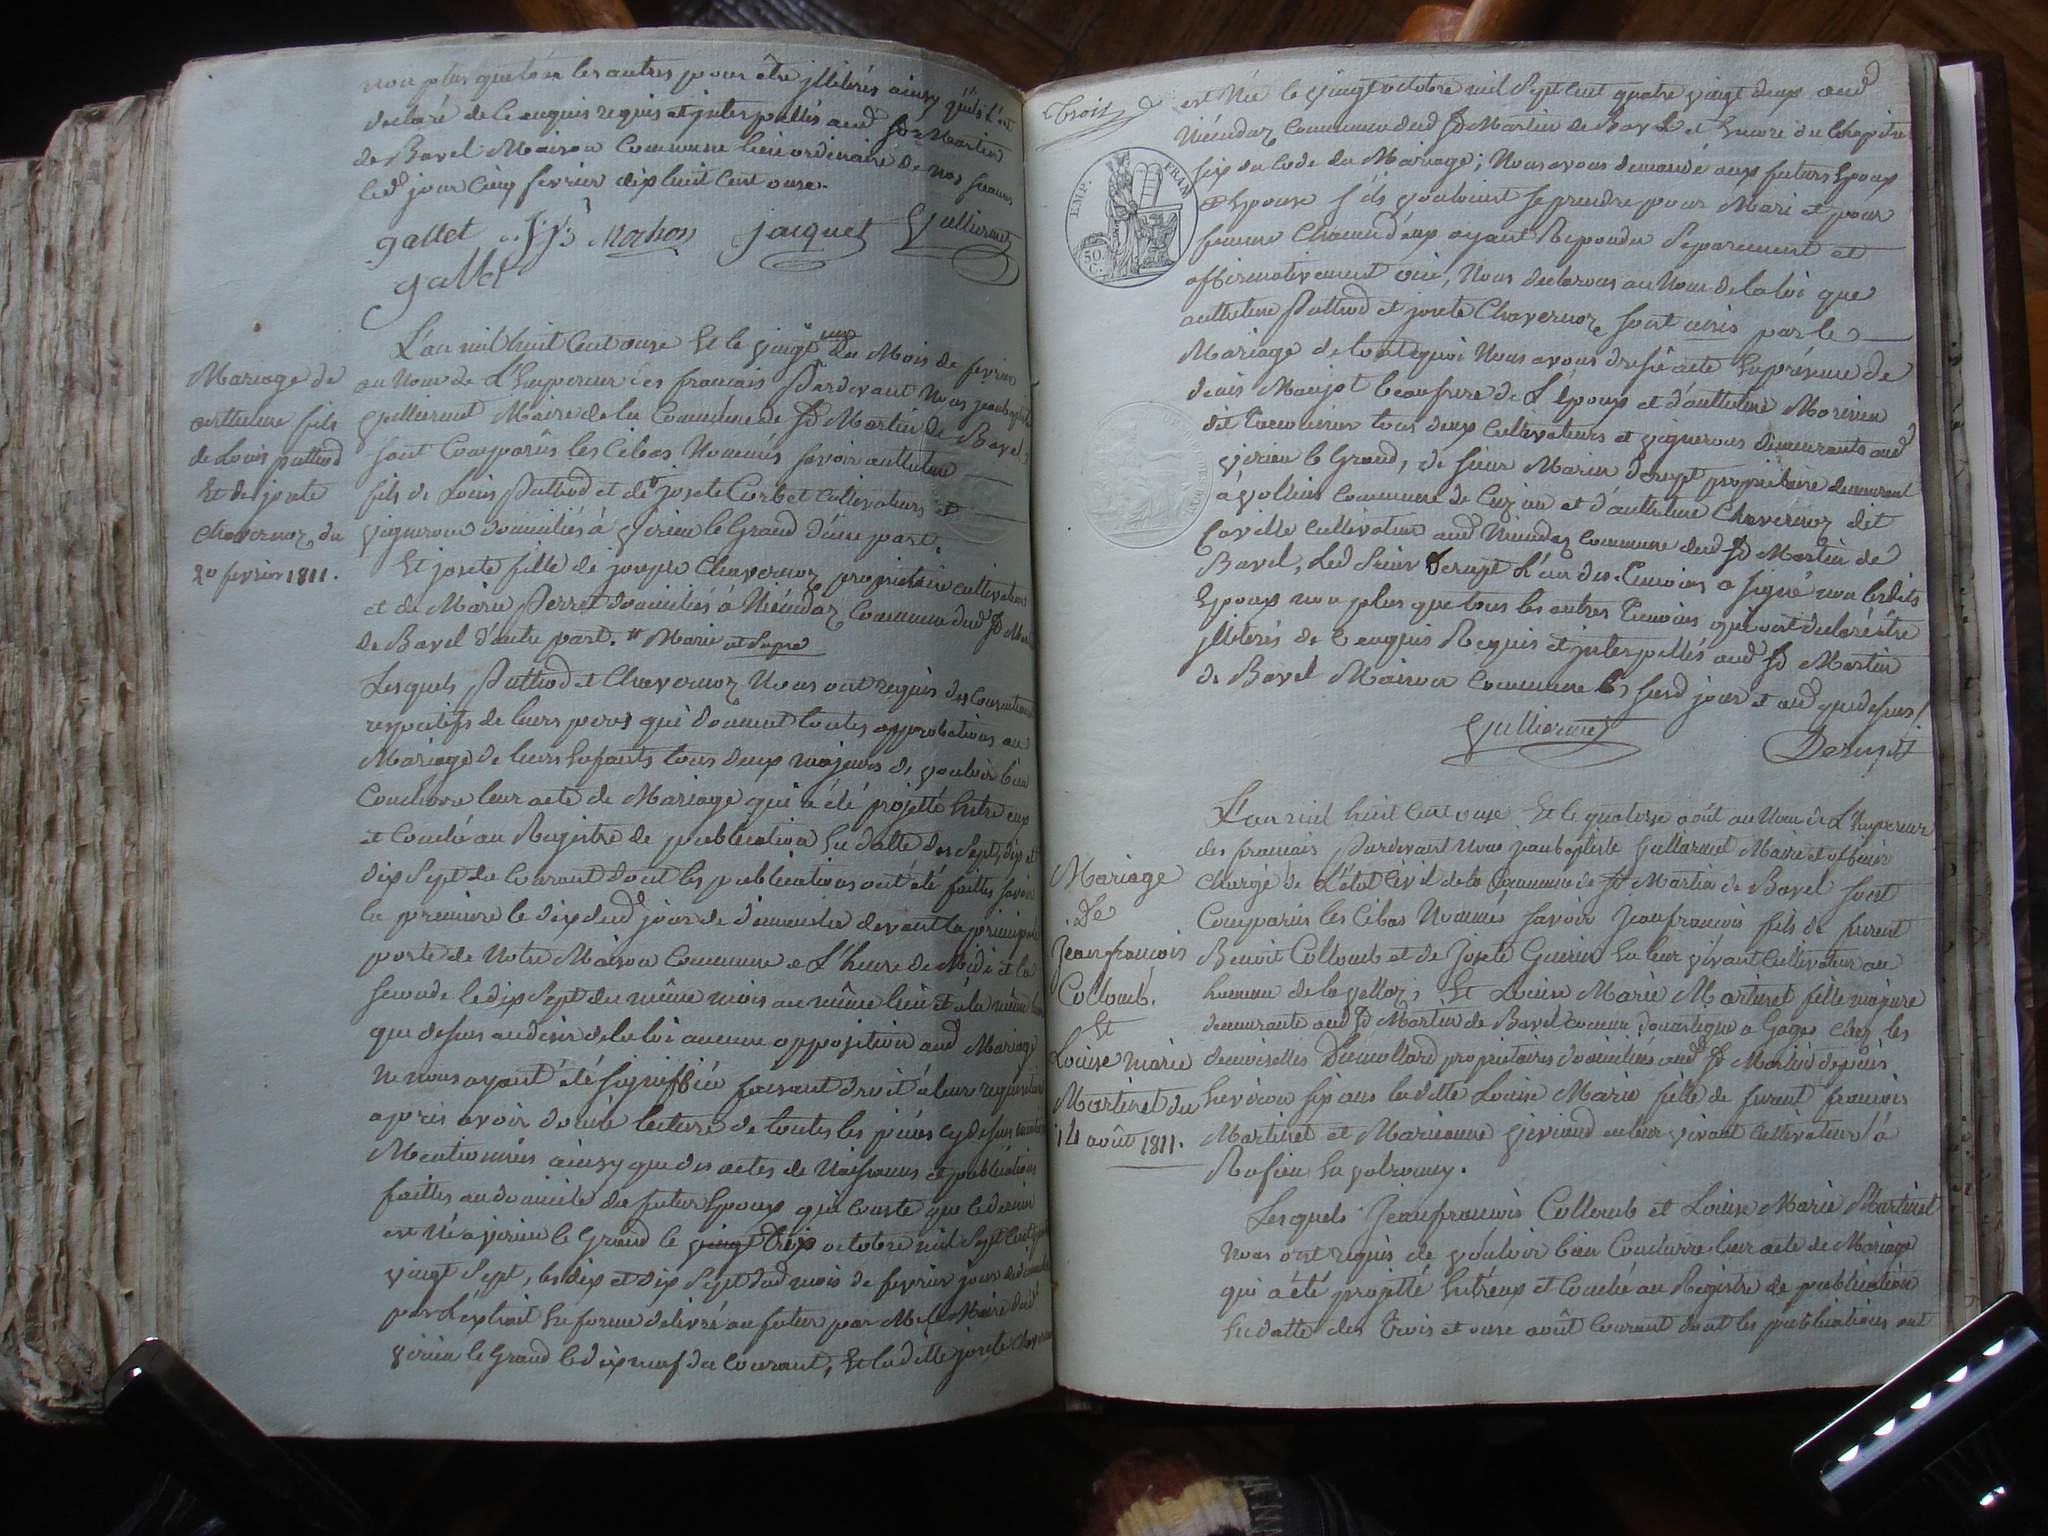 non plus que les autres pour être jlliterés ainsy qu'ils l'ont
declaré de ce enquis requis et jnterpellés aud St Martin
de Bavel Maison Commune lieu ordinaire de nos seances
led jour cinq fevrier dix huit cent onze.
gallet Mochon jacquet Gullermet
gallet
L'an mil huit cent onze Et le vingt un du Mois de fevrier
au Nom de L'Empereur des francais Pardevant Nous jeanbaptiste
Gulliermet Maire de la Commune de St Martin de Bavel
sont Comparûs les Cibas Nommés savoir anthelme
fils de Louis Puthod et de josete Corbet cultivateurs et
vigneron domiciliés à Virieu le Grand d'une part.
Et josete fille de joseph Chavernoz propriétaire cultivateur
et de Marie Perret domiciliés à Commune dud St Martin
de Bavel d'autre part. Marie
Mariage de
anthelme fils
de Louis puthod
Et de josete
Chavernoz du
20 fevrier 1811.
Lesquels Puthod et Chavernoz Nous ont requis des consentements
respectifs de leurs peres qui donnent toutes approbations au
Mariage de leurs Enfants tous deux majeurs de vouloir bien
Conclurre leur acte de Mariage qui a été projetté Entre eux
et couché au Registre de publication En datte des sept, dix et
dix sept du Courant dont les publications ont été faittes savoir
la premiere le dix dud jour de dimanche devant la principale
porte de Notre Maison Commune a L'heure de Midi et la
seconde le dix sept du même mois au même lieu et à la même heure
que dessus au desir de la loi aucune opposition aud Mariage
Ne nous ayant été signiffiée faisant droit à leur requisition
apres avoir donné lecture de toutes les pieces cy dessus
Mentionnées ainsy que des actes de Naissances et publications
faittes au domicile du futur Epoux qui conste que ce dernier
est né a virieu le Grand le vingt trois octobre mil sept cent
vingt sept, les dix et dix sept dud mois de fevrier jour de dimanche
par L'extrait En forme delivré au futur par Mr le Maire dud
virieu le Grand le dix neuf du Courant, Et ladite josete Chavernoz
Trois
EMP. FRAN
50.
C.
est Née le vingt octobre mil sept cent quatre vingt deux aud
Commune dud St Martin de Bavel et Encore du Chapitre
six du Code du Mariage; Nous avons demandé aux futurs Epoux
et Epouse s'ils vouloient se prendre pour Mari et pour
femme Chacun d'eux ayant Repondu Separement et
affirmativement oui, Nous declarons au Nom de la loi que
anthelme Puthod et josete Chavernoz sont unis par le
Mariage de tout quoi Nous avons dressé acte En présence de
denis Maujot beaufrere de L'Epoux et d'anthelme Morinier
dit tous deux cultivateurs et vignerons demeurants aud
virieu le Grand, de sieur Marin propriétaire demeurant
à Vollien Commune de Cuzieu et d'anthelme Chavernoz dit
Caville cultivateur aud Commune dud St Martin de
Bavel, Led Sieur L'un des temoins a signé non lesdits
Epoux non plus que tous les autres temoins qui ont declaré être
jlliterés de ce enquis Requis et jnterpellés aud St Martin
de Bavel Maison Commune Les susd jour et an que dessus
Gulliermet
L'an mil huit cent onze Et le quatorze août au Nom de L'Empereur
des francais Pardevant Nous jeanbaptiste Gulliermet Maire et officier
Chargé de L'état Civil de la Commune de St Martin de Bavel sont
Comparûs les Cibas Nommés savoir Jeanfrancois fils de furent
Benoit Collomb et de Josete Guerin En leur vivant Cultivateur au
hameau de la vellaz, Et Louise Marie Martinet fille majeure
demeurante aud St Martin de Bavel comme domestique a Gages chez les
demoiselles Dumollard propriétaires domiciliées aud St Martin depuis
Environ six ans ladite Louise Marie fille de furent francois
Martinet et Marieanne en leur vivant Cultivateur à
Rosieu En valromey.
Mariage
De
Jeanfrancois
Collomb.
Et
Louise Marie
Martinet du
14 août 1811.
Lesquels Jeanfrancois Collomb et Louise Marie Martinet
Nous ont requis de vouloir bien Conclurre leur acte de Mariage
qui a été projetté Entr'eux et Couché au Registre de publication
En datte des trois et onze août Courant dont les publications ont